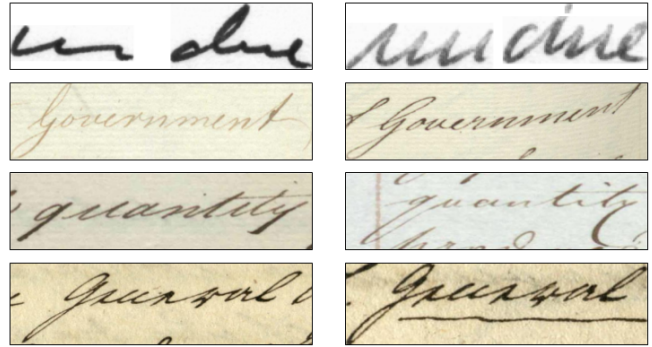 un due un due
Government & Government
quantity quantity
General General